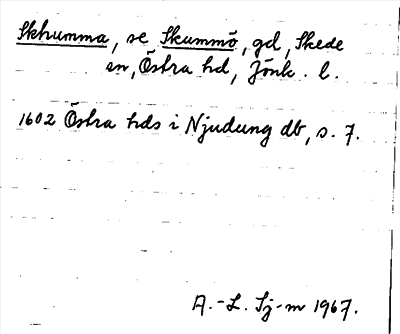 Skhumma, se Skummö, gd, Skede
sn, Östra hd, Jönk. l.
1602 Östra hds i Njudung db, s. 7.
A.-L. Sj-m 1967.